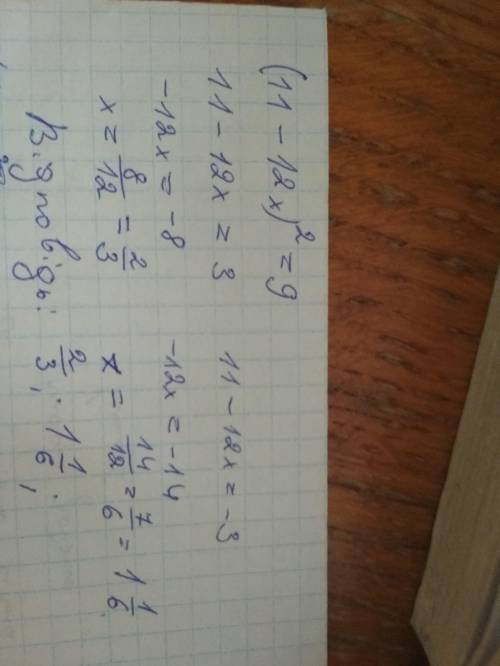 (11 - 12x)² = 9
11 - 12x = 3 11 - 12x = -3
-12x = -8 -12x = -14
x = 8/12 = 2/3 x = 14/12 = 7/6 = 1 1/6
Відповідь: 2/3; 1 1/6;